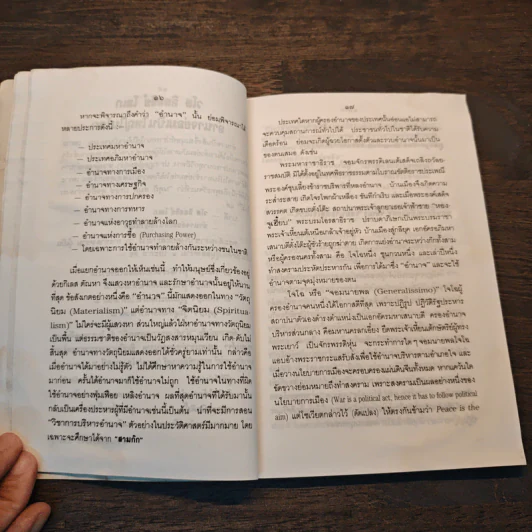 ๑๖
หากจะพิจารณาถึงคำว่า "อำนาจ" นั้น ย่อมพิจารณาได้
หลายประการดังนี้
– ประเทศมหาอำนาจ
– ประเทศอภิมหาอำนาจ
– อำนาจทางการเมือง
– อำนาจทางเศรษฐกิจ
– อำนาจทางการปกครอง
– อำนาจทางการทหาร
– อำนาจแห่งอาวุธทำลายล้างโลก
– อำนาจแห่งการซื้อ (Purchasing Power)
– โดยเฉพาะการใช้อำนาจทำลายล้างกันระหว่างชนในชาติ
เมื่อแยกอำนาจออกให้เห็นเช่นนี้ ทำให้มนุษย์ซึ่งเกี่ยวข้องอยู่
ด้วยกิเลส ตัณหา จึงแสวงหาอำนาจ และรักษาอำนาจนั้นอยู่ให้นาน
ที่สุด ข้อสังเกตอย่างหนึ่งคือ "อำนาจ" นี้มักแสดงออกในทาง "วัตถุ
นิยม (Materialism)" แต่อำนาจทาง "จิตนิยม (Spiritua
lism)" ไม่ใคร่จะมีผู้แสวงหา ส่วนใหญ่แล้วไปหาอำนาจทางวัตถุนิยม
เป็นพื้น แต่ธรรมชาติของอำนาจเป็นวัฏสงสารหมุนเวียน เกิด-ดับไม่
สิ้นสุด อำนาจทางวัตถุนิยมแสดงออกได้ชั่วครู่ยามเท่านั้น กล่าวคือ
เมื่ออำนาจได้มาอย่างไม่รู้ตัว ไม่ได้ศึกษาหาความรู้ในการใช้อำนาจ
มาก่อน ครั้นได้อำนาจมาก็ใช้อำนาจไม่ถูก ใช้อำนาจในทางที่ผิด
ใช้อำนาจอย่างฟุ่มเฟือย เหลิงอำนาจ ผลที่สุดอำนาจที่ได้รับมานั้น
กลับเป็นเครื่องประหารผู้ที่มีอำนาจเช่นนี้เป็นต้น น่าที่จะมีการสอน
"วิชาการบริหารอำนาจ" ตัวอย่างในประวัติศาสตร์มีมากมาย โดย
เฉพาะจะศึกษาได้จาก "สามก๊ก"
๑๗
ประเทศใดหากผู้ครองอำนาจของประเทศนั้นอ่อนแอไม่สามารถ
จะควบคุมสถานการณ์ทั่วไปได้ ประชาชนทั่วไปในชาติได้รับความ
เดือดร้อน ย่อมจะเกิดผู้ฉวยโอกาสตั้งตัวและรวบอำนาจนั้นมาเป็น
ของตนเสมอ ดังเช่น
พระมหาราชาธิราช จอมจักรพรรดิเลนเต้เสด็จเถลิงถวัลย
ราชสมบัติ มิได้ตั้งอยู่ในทศพิธราชธรรมตามโบราณขัตติยราชประเพณี
องค์ชุบเลี้ยงข้าราชบริพารที่หลงอำนาจ บ้านเมืองจึงเกิดความ
ระส่ำระสาย เกิดโจรโพกผ้าเหลือง ขันทีกำเริบ และเมื่อพระองค์เสด็จ
สวรรคต เกิดขบถตั๋งโต๊ะ สถาปนาพระเจ้าลูกยาเธอเจ้าฟ้าชาย "หอง-
จูเหียบ" พระบรมโอรสาธิราช ปราบดาภิเษกเป็นพระบรมราชา
พระเจ้าเหี้ยนเต้เหนือเกล้าเจ้าอยู่หัว บ้านเมืองสู่กลียุค เอกอัครอภิมหา
เสนาบดีตั๋งโต๊ะผู้ชั่วร้ายถูกฆ่าตาย เกิดการแย่งอำนาจระหว่างก๊กทั้งสาม
หรือผู้ครองนครทั้งสาม คือ โจโฉหนึ่ง ซุนกวนหนึ่ง และเล่าปี่หนึ่ง
ทำสงครามประหัตประหารกัน เพื่อการได้มาซึ่ง "อำนาจ" และจะใช้
อำนาจตามจุดมุ่งหมายของตน
โจโฉ หรือ "จอมนายพล (Generalissimo)" โจโฉผู้
ครองอำนาจคนหนึ่งที่ได้โอกาสดีที่สุด เพราะปฏิรูป ปฏิวัติรัฐประหาร
สถาปนาตัวเองดำรงตำแหน่งเป็นเอกอัครมหาเสนาบดี ครองอำนาจ
บริหารส่วนกลาง คือมหานครลกเอี๋ยง ยึดพระเจ้าเหี้ยนเต้กษัตริย์ผู้ทรง
พระเยาว์ เป็นจักรพรรดิหุ่น จะกระทำการใด ๆ จอมนายพลโจโฉ
แอบอ้างพระราชกระแสรับสั่งเพื่อใช้อำนาจบริหารตามอำเภอใจ และ
เมื่อวางนโยบายการเมืองจะครอบครองแผ่นดินจีนทั้งหมด หากแคว้นใด
ขัดขวางย่อมหมายถึงทำสงคราม เพราะสงครามเป็นผลอย่างหนึ่งของ
นโยบายการเมือง (War is a political act, hence it has to follow political
aim) แต่โซเวียตกล่าวไว้ (ดัดแปลง) ให้ตรงกันข้ามว่า Peace is the